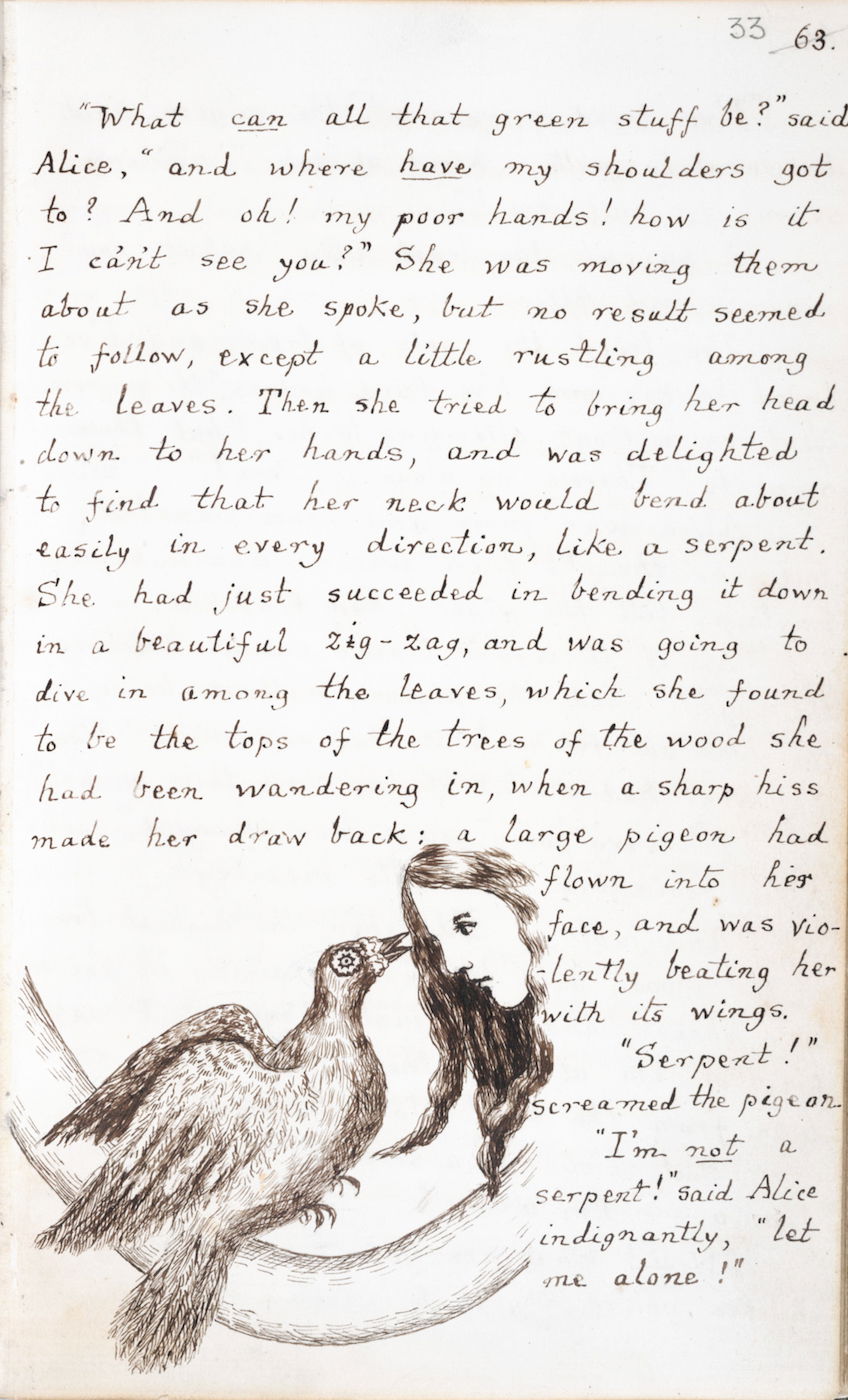 33 63.
"What can all that green stuff be?" said
Alice, "and where have my shoulders got
to? And oh! my poor hands! how is it
I ca'n't see you?" She was moving them
about as she spoke, but no result seemed
to follow, except a little rustling among
the leaves. Then she tried to bring her head
down to her hands, and was delighted
to find that her neck would bend about
easily in every direction, like a serpent.
She had just succeeded in bending it down
in a beautiful zig-zag, and was going to
dive in among the leaves, which she found
to be the tops of the trees of the wood she
had been wandering in, when a sharp hiss
made her draw back: a large pigeon had
flown into her
face, and was vio-
-lently beating her
with its wings.
"Serpent!"
screamed the pigeon.
"I'm not a
serpent!" said Alice
indignantly, "let
me alone!"